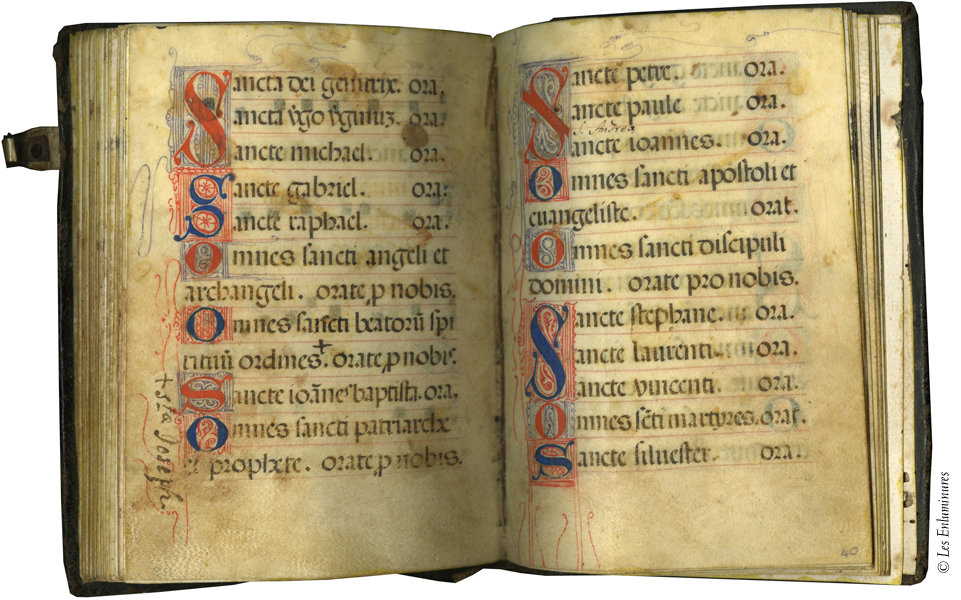 Sancta dei genitrix. ora.
Sancta v̄go v̄ginū. ora.
Sancte michael. ora.
Sancte gabriel. ora.
Sancte raphael. ora.
Omnes sancti angeli et
archangeli. orate ꝓ nobis.
Omnes sancti beatorū spi
rituū ordines. + orate ꝓ nobis.
Sancte ioānes baptista. ora.
Omnes sancti patriarche
et prophete. orate ꝓ nobis.
+ Joseph
Sancte petre. ora.
Sancte paule. ora.
S. Andrea
Sancte ioannes. ora.
Omnes sancti apostoli et
euangeliste. orat.
Omnes sancti discipuli
domini. orate pro nobis.
Sancte stephane. ora.
Sancte laurenti. ora.
Sancte vincenti. ora.
Omnes sc̄ti martyres. orat.
Sancte siluester. ora.
40
© Les Enluminures